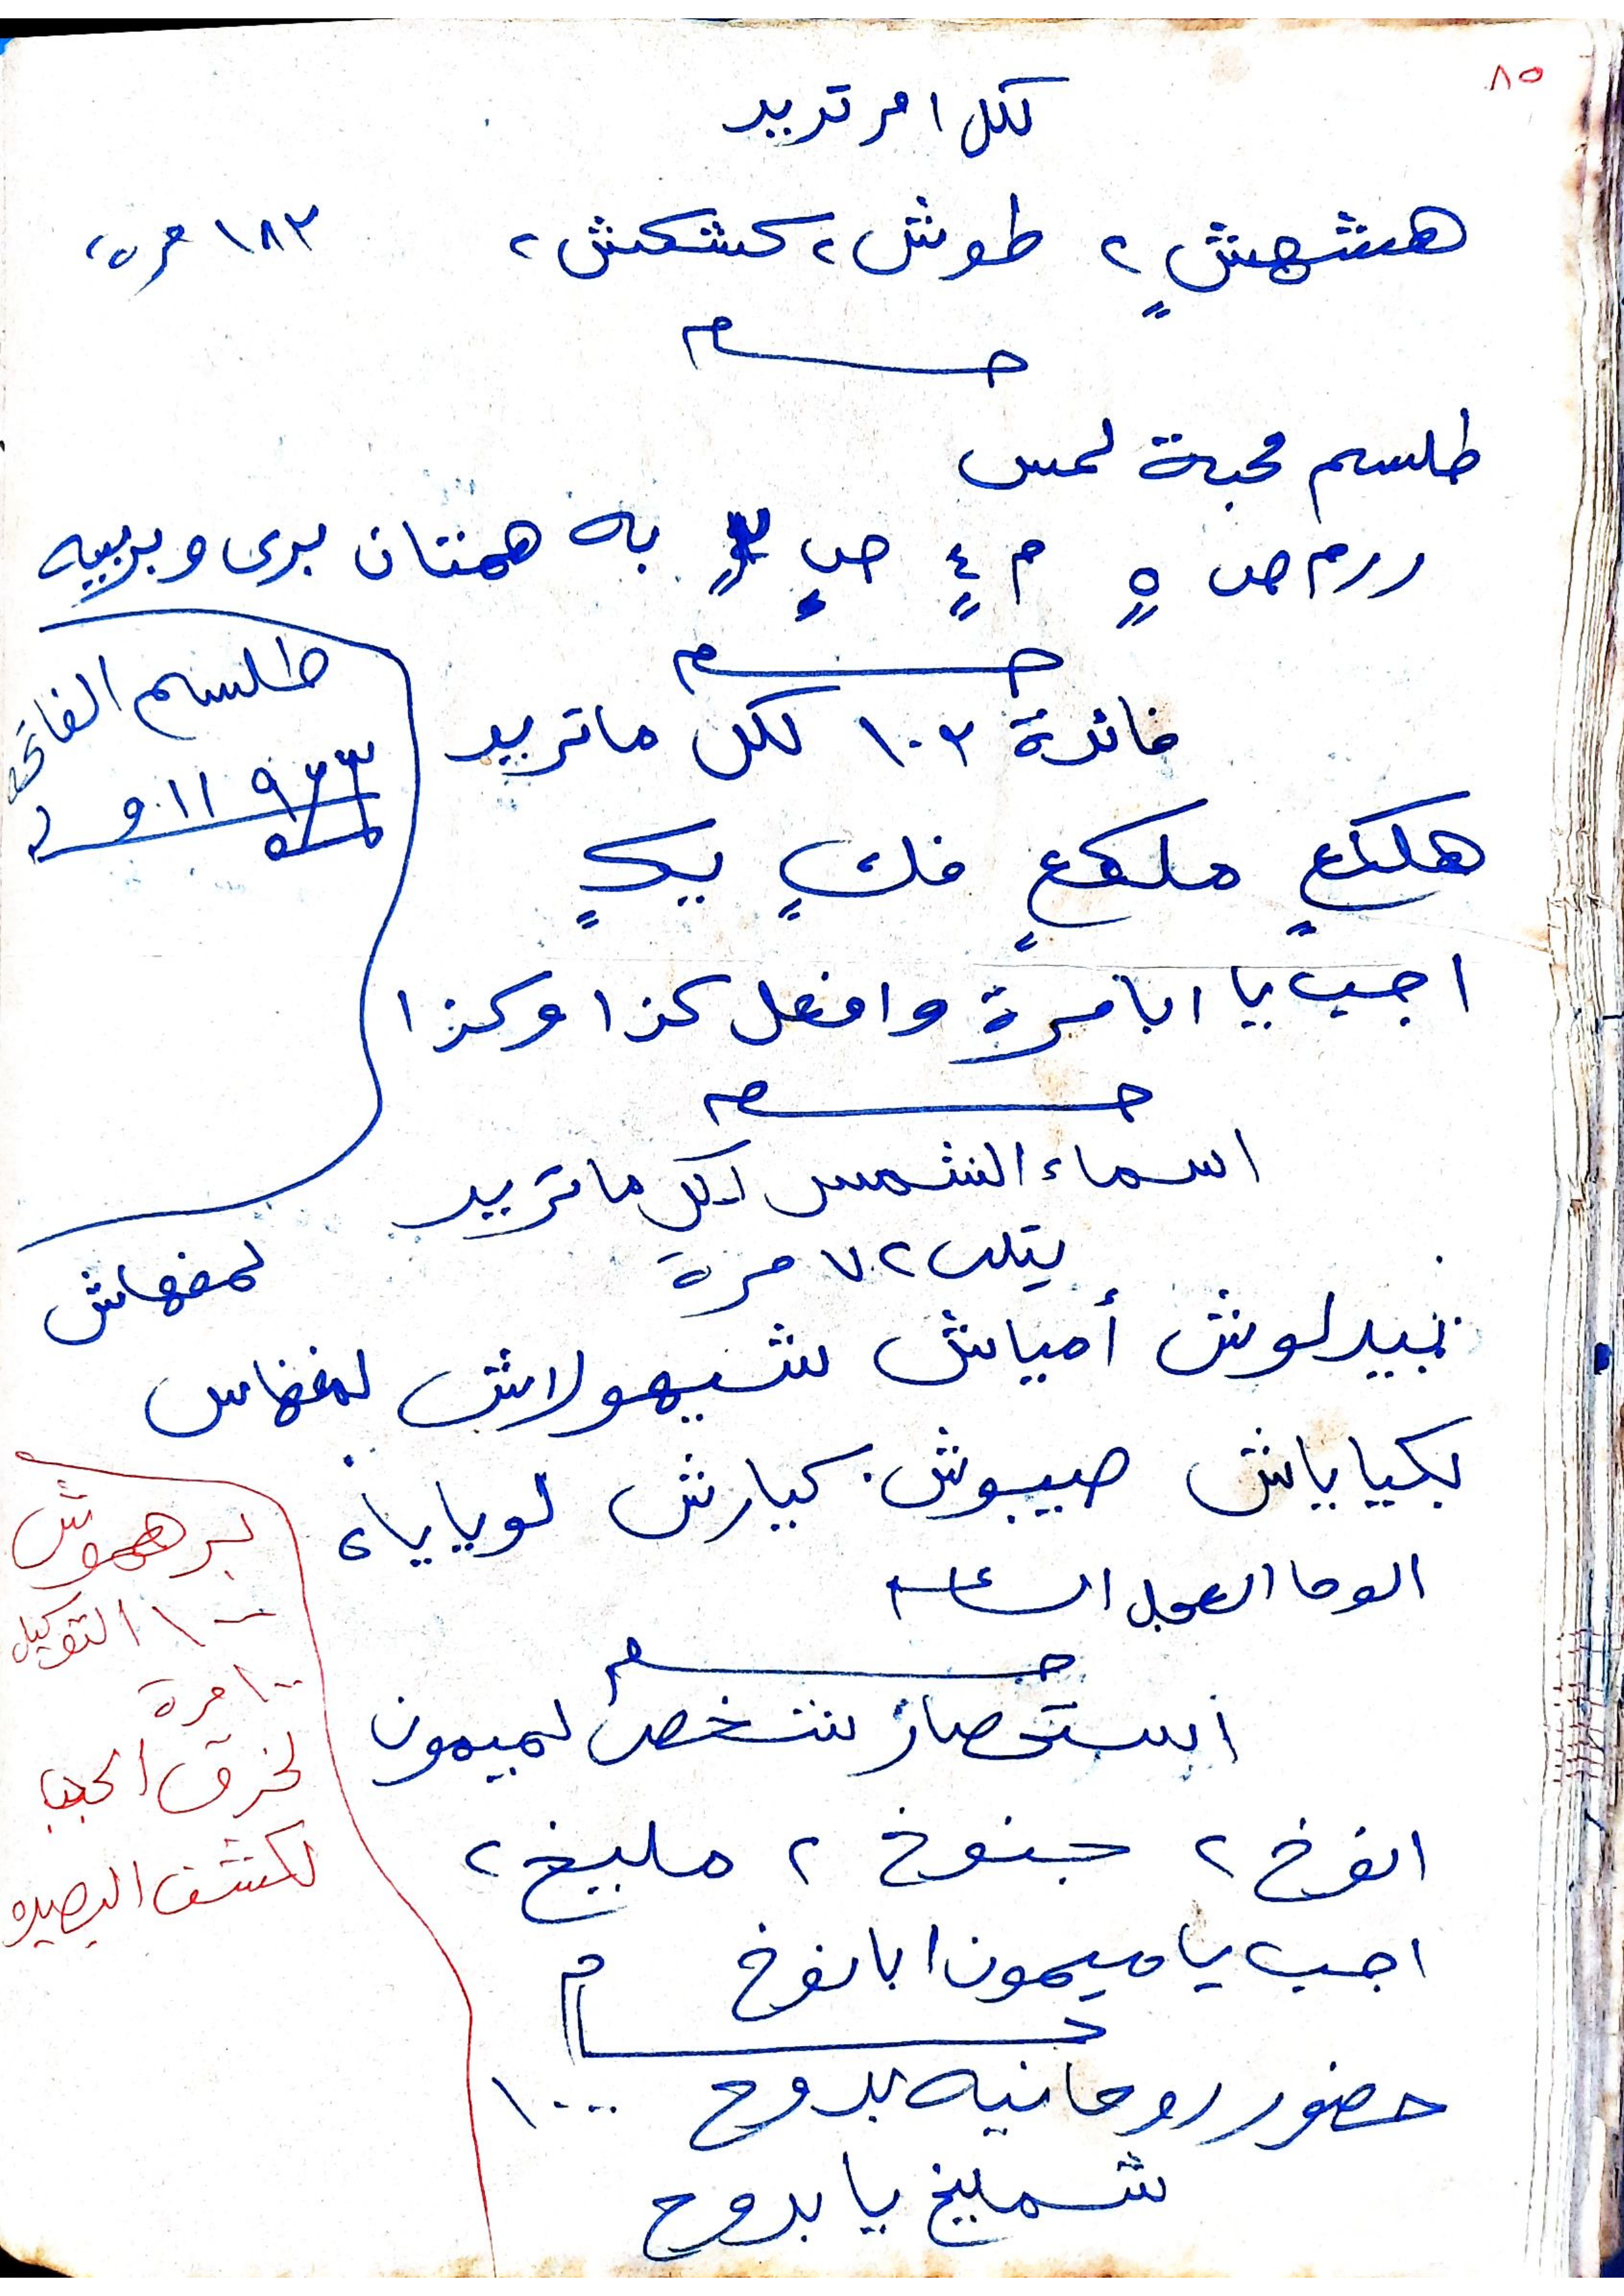 ٨٥
لكل امر تريد
هشهش ٢ طوش ٢ كشكش ٢ ١٨٢ مرة
طلسم محبة لمس
ررم ص ٥ م ٤ ص ٣ به همنتان برى وبربيه
طلسم الفاتح
٩ ١١ و
فائدة ١٠٢ لكل ماتريد
هلكع ملكع فك بك
اجب يا ابا مرة وافعل كذا وكذا
اسماء الشمس لكل ماتريد
يتلى ٧٠٢ مرة
لمفهاش
نبيدلوش أمياش شيهولاش لمفهاس
بكياياش صيبوش كيارش لوياياه
الوحا العجل الساعه
برهموش
١٠٠ التوكيل
١٠٠ مرة
لخرق الحجاب
لكشف البصيره
استحضار شخص لميمون
انوخ ٢ جنوخ ٢ مليخ ٢
اجب يا ميمون ابا نوخ
حضور روحانيه بدوح ١٠٠٠
شمليخ يا بدوح